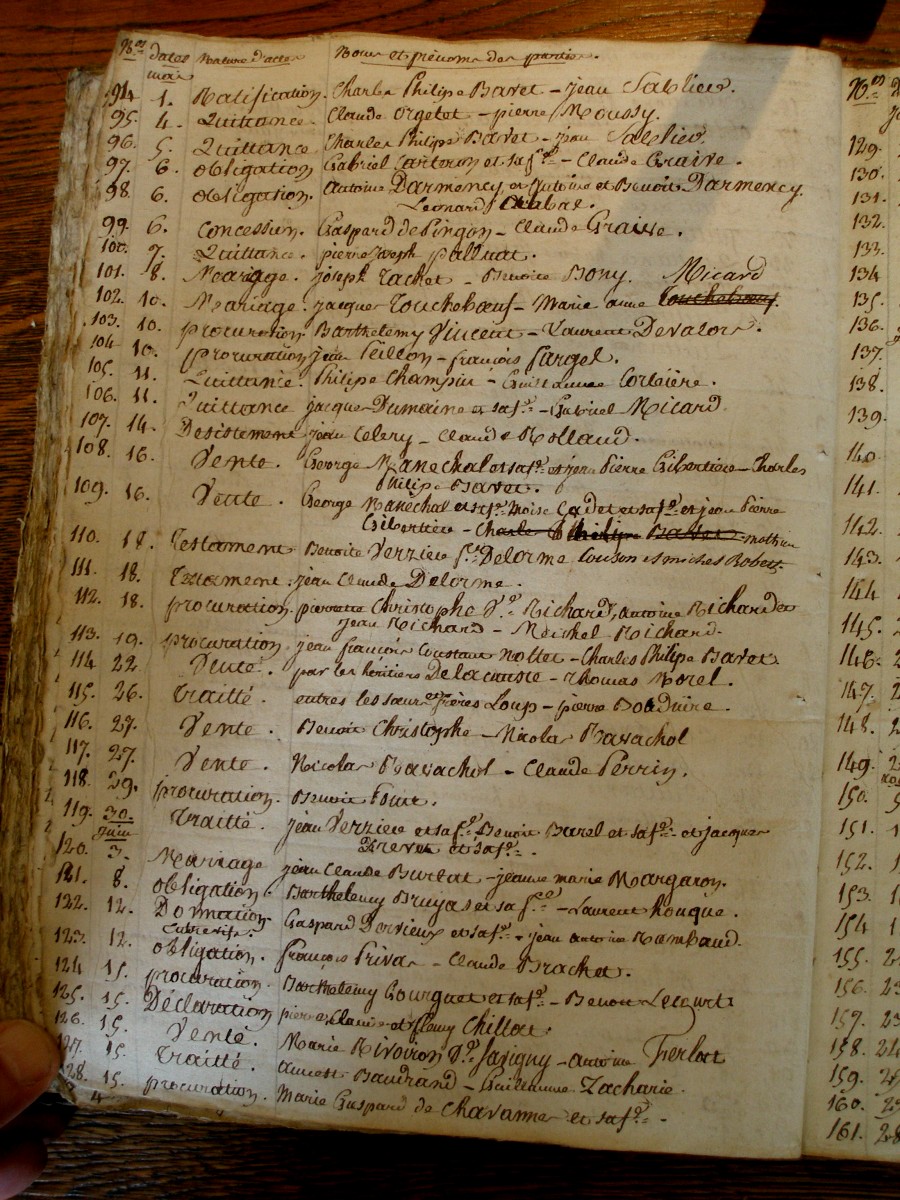 Nos dates Nature d'actes Noms et prénoms des parties.
mai
94 1. Ratification. Charles Philipe Bavet - jean Sablier.
95. 4. Quittance. Claude Orgelet - pierre Moussy.
96. 5. Quittance Charles Philipe Bavet - jean Sablier.
97. 6. obligation Gabriel Carteron et sa fe - Claude Graive.
98. 6. obligation. Antoine Darmency, et Antoine et Benoit Darmency.
Leonard Chabal.
99. 6. Concession. Gaspard de Pingon - Claude Graive.
100. 7. Quittance. pierre joseph palluat.
101. 8. Mariage. joseph Tachet - Benoite Bony.
102. 10. Mariage. jacques Touchebœuf - Marie anne Touchebœuf. Micard
103. 10. procuration Barthelemy Vincent - Laurent Devalors.
104 10. procuration jean Peillon - françois fargel.
105. 11. Quittance. Philipe Champin - Corbière.
106. 11. Quittance jacques Dumaine et sa fe - Gabriel Micard
107. 14. Desistement jean Celery - Claude Rolland.
108. 16. Vente. George Marechal et sa fe et jean Pierre Gibertière - Charles
Philipe Bavet.
109. 16. Vente. George Marechal et sa fe Cadet et sa fe et jean Pierre
Gibertière - Charle Philipe Bavet
110. 18. Testament Benoite Verzière fe Delorme
111. 18. Testament: jean Claude Delorme.
112. 18. procuration. pierrette Christophe Ve Richard, antoine Richard et
jean Richard - Michel Richard.
113. 19. procuration. jean françois Constant Nollet - Charles Philipe Bavet
114 22. Vente. par les héritiers Delacause - Thomas Morel.
115. 26. Traitté. entres les sœur et frères Loup - pierre
116. 27. Vente. Benoit Christophe - Nicolas Ravachol
117. 27. Vente. Nicolas Ravachol - Claude Perrin.
118. 29. procuration. Benoit
119. 30. Traitté. jean Verzière et sa fe Benoit Burel et sa fe et jacques
et sa fe.
juin
120. 3. Mariage jean Claude Burlat - jeanne marie Margaron.
121. 8. obligation. Barthelemy Bruyas et sa fe - Laurent
122. 12. Donnation Gaspard Dervieux et sa fe - jean antoine Rambaud.
Entrevifs.
123. 12. obligation. françois Privas - Claude Brachet.
124 15. procuration. Barthelemy Gourguet et sa fe - Benoit Lecourt
125. 15. Déclaration pierre, Claude et fleury Chillet.
126. 15. Vente. Marie Rivoiron Ve Savigny - antoine Ferlat
127. 15. Traitté. Baudrand - Guillemme Zacharie.
128. 15. procuration. Marie Gaspard de Chavannes et sa fe.
Nos
129.
130.
131.
132.
133.
134
135.
136.
137.
138.
139.
140
141.
142.
143.
144
145.
146.
147.
148.
149.
150.
151.
152.
153
154
155.
156.
157.
158.
159.
160.
161.